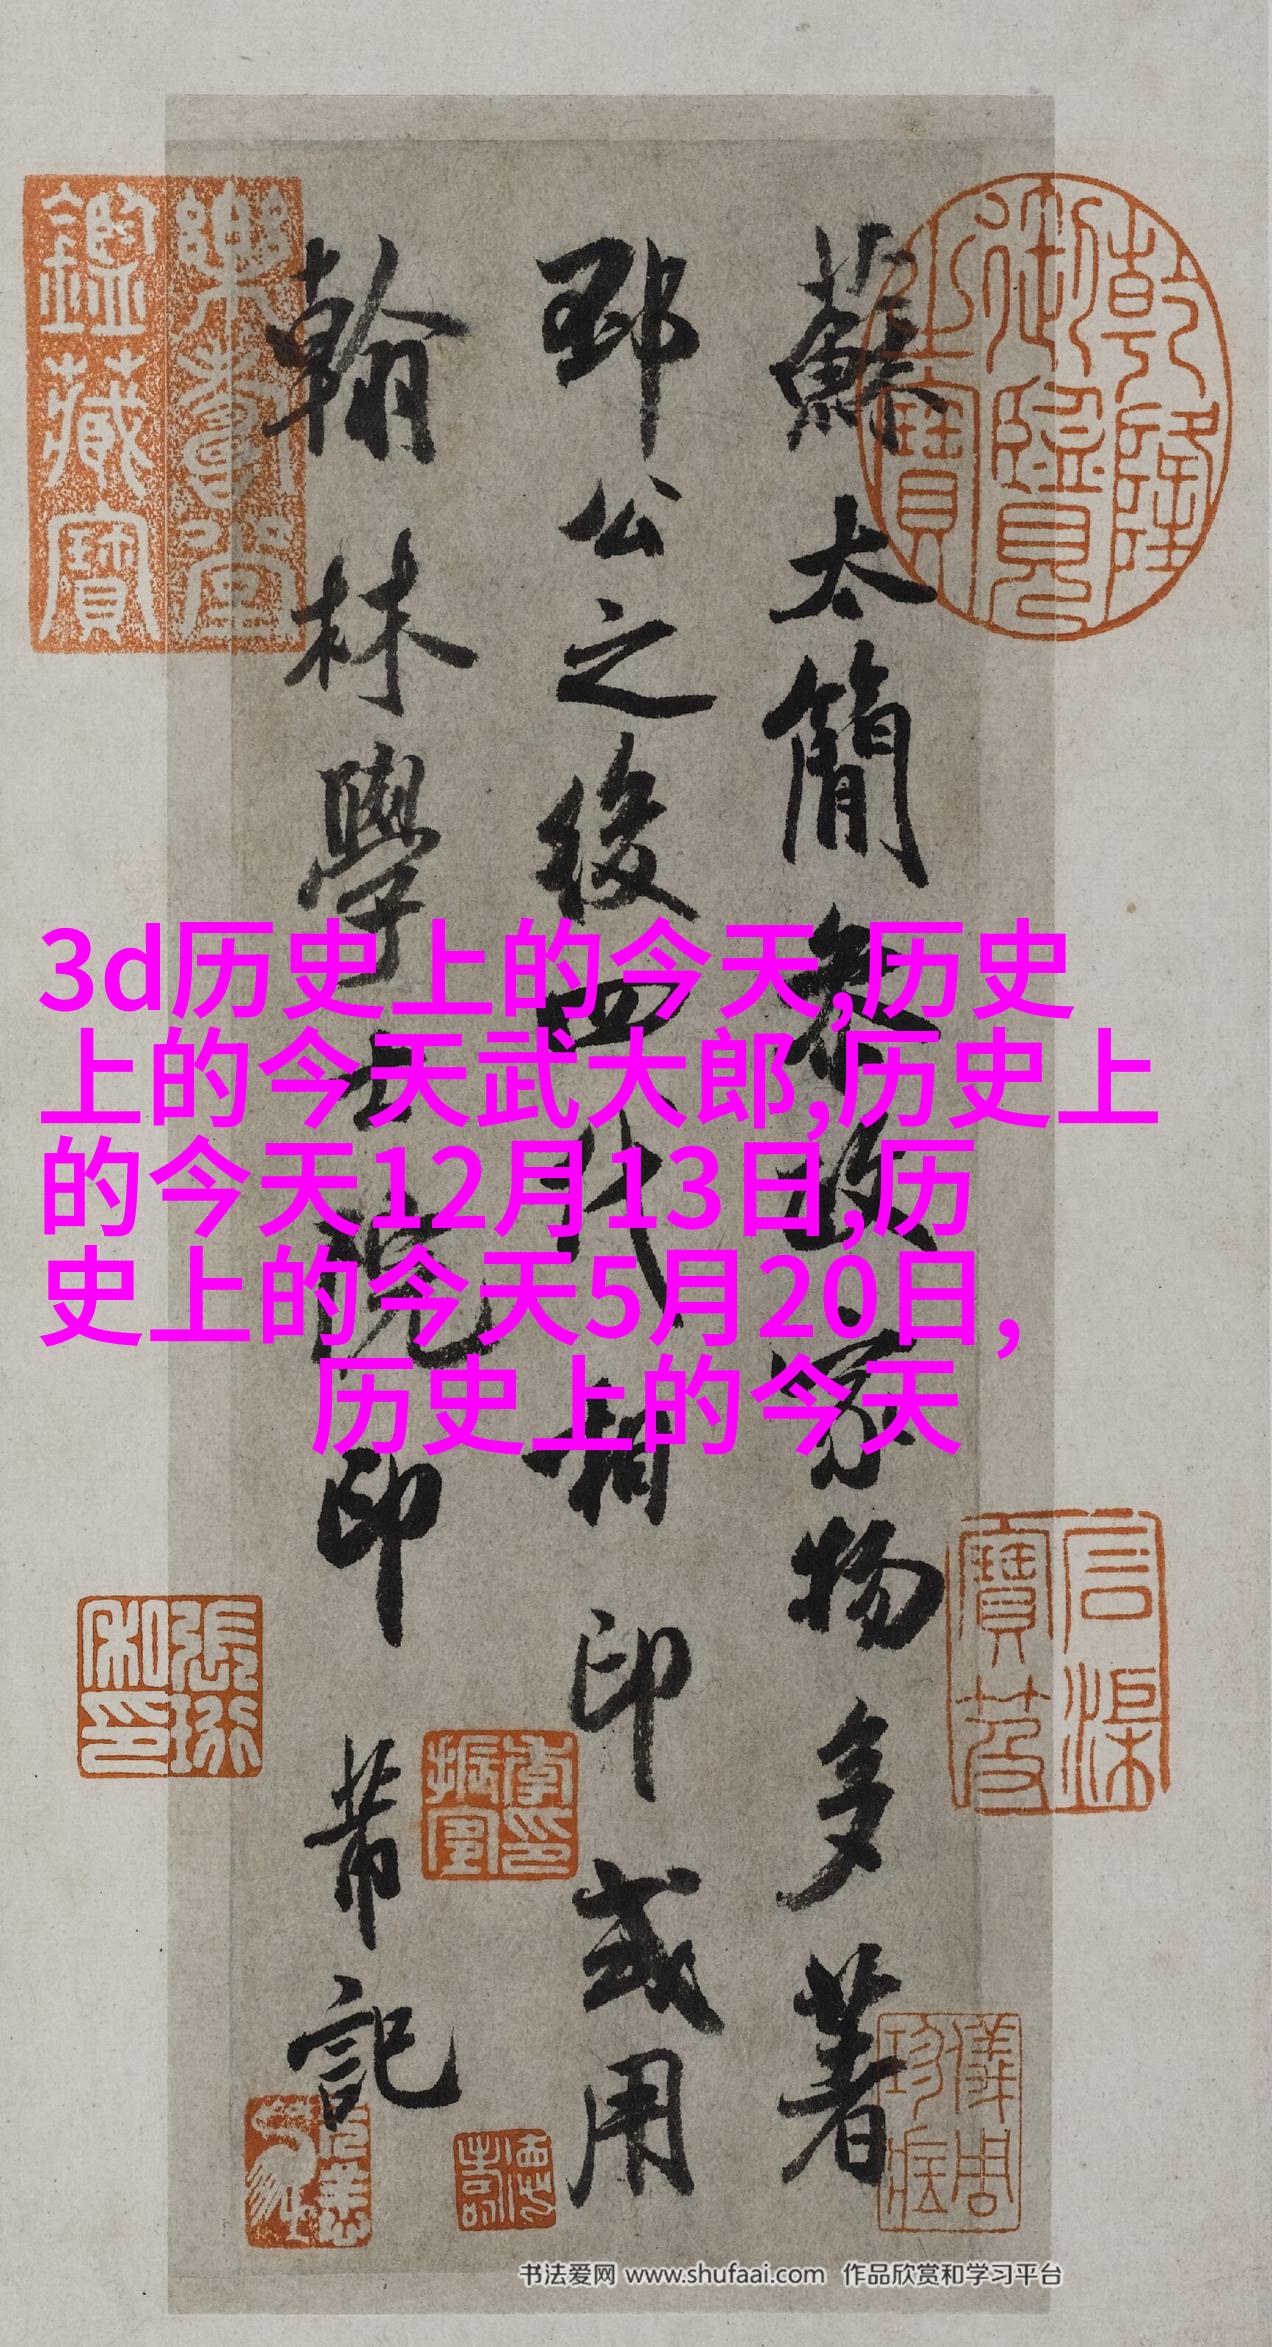 乾隆御覽之寶
蘇太簡參政家物多著
邳公之後四代相印或用
翰林學士院印芾記
樂壽堂鑑藏寶
3d历史上的今天,历史
上的今天武大郎,历史上
的今天12月13日,历
史上的今天5月20日,
历史上的今天
石渠寶笈
張珩私印
儀周珍藏
书法爱网 www.shufaai.com 作品欣赏和学习平台